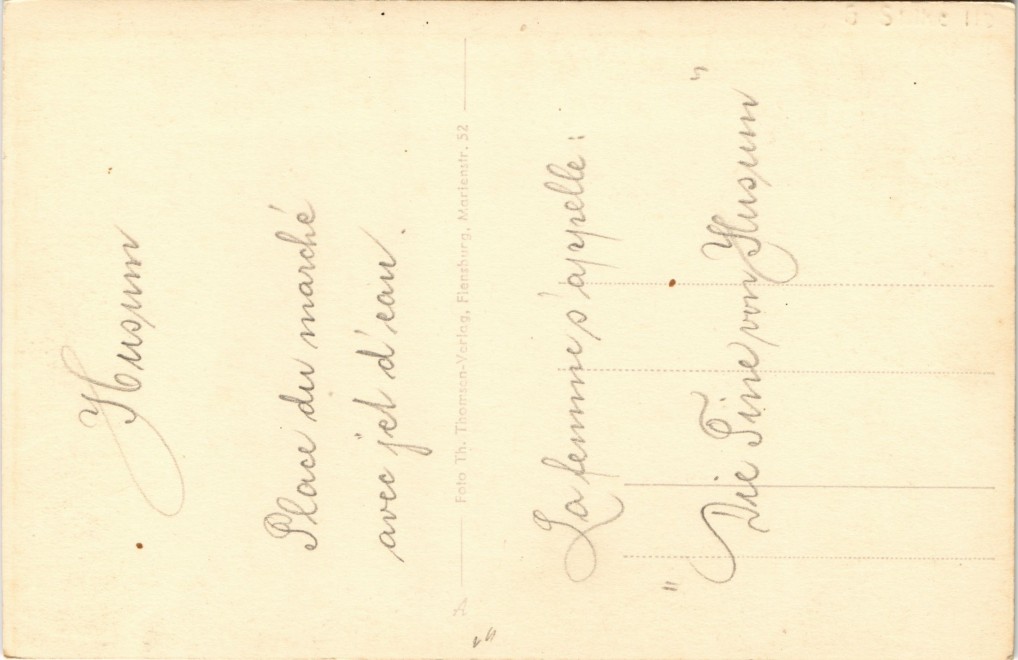 Husum
Place du marché
avec jet d'eau.
Foto Th. Thomsen-Verlag, Flensburg, Marienstr. 52
La femme s'appelle:
"Die Tine von Husum"